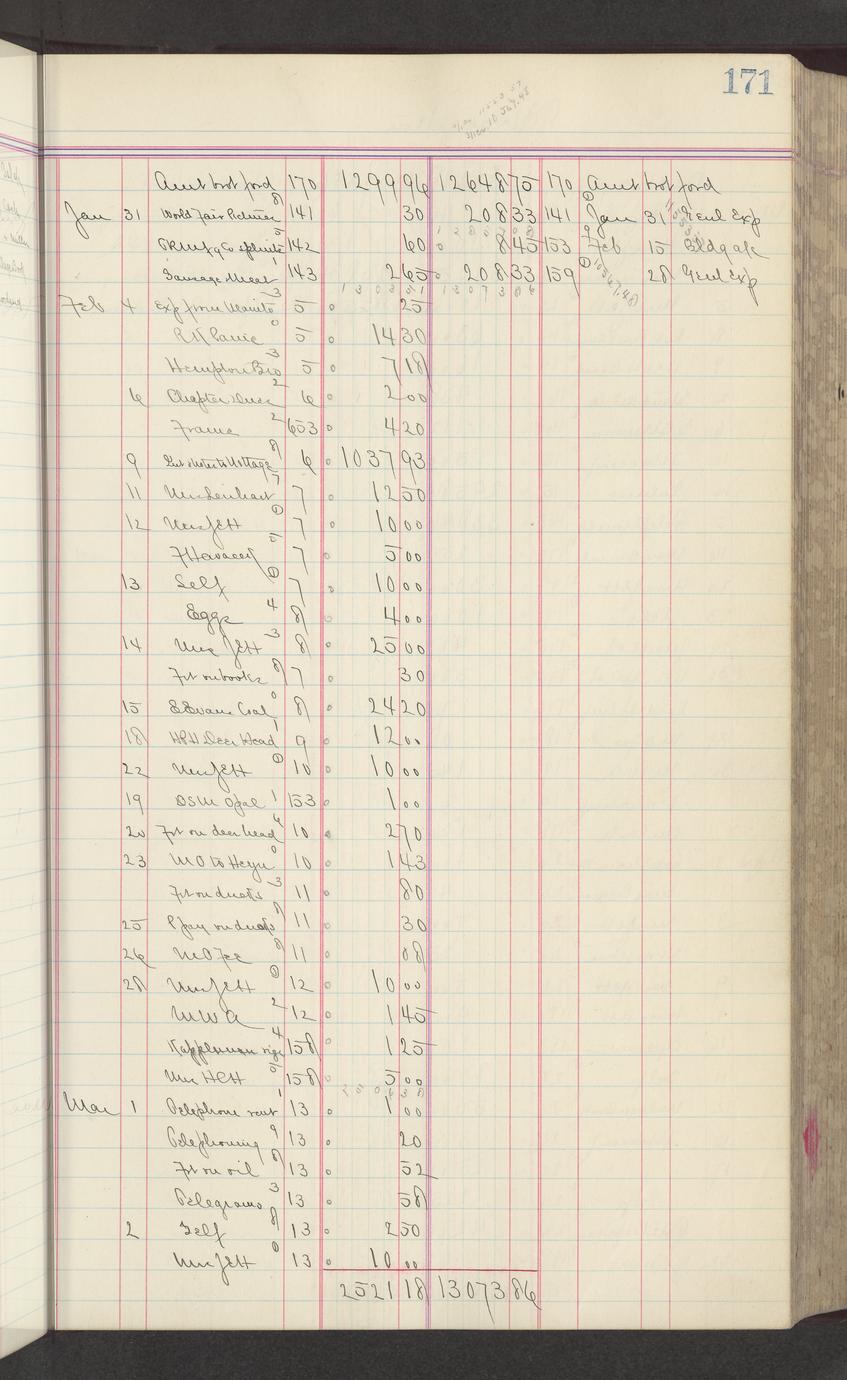 171
Amt brot ford 170 1299 96 12648 75 170 Amt brot ford
Jan 31 World Fair 141 30 208 33 141 Jan 31 Genl Exp
142 60 8 45 153 Feb 15 Bldg a/c
Sausage Meat 143 2 65 208 33 159 28 Genl Exp
1303 51 13073 86
Feb 4 Exp from Manito 5 25
5 14 30
Hampton Bro 5 7 18
6 Chapter Dues 6 2 00
Frame 653 4 20
9 Cottage 6 1037 93
11 Mrs Lenhart 7 12 50
12 Mrs JEH 7 10 00
7 5 00
13 Self 7 10 00
Eggs 8 4 00
14 Mrs JEH 8 25 00
Frt on books 7 30
15 E Evans Coal 8 24 20
18 HPH Deer Head 9 12 00
22 Mrs JEH 10 10 00
19 DSM Opal 153 1 00
20 Frt on deer head 10 2 70
23 M O to Heyn 10 1 43
Frt on ducks 11 80
25 on ducks 11 30
26 M O Fee 11 08
28 Mrs JEH 12 10 00
M W A 12 1 45
158 1 25
Mrs HCH 158 5 00
2506 38
Mar 1 Telephone rent 13 1 00
Telephoning 13 20
Frt on oil 13 52
Telegrams 13 58
2 Self 13 2 50
Mrs JEH 13 10 00
2521 18 13073 86